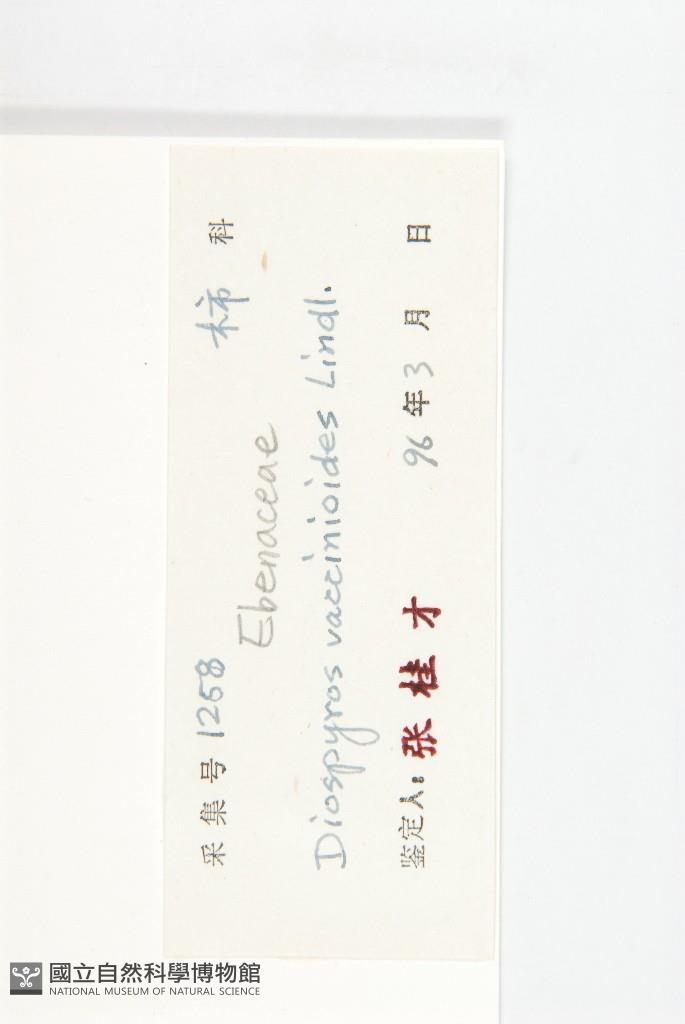 采集号 1258 柿 科
Ebenaceae
Diospyros vaccinioides Lindl.
鉴定人: 张桂才 96 年 3 月 日
國立自然科學博物館
NATIONAL MUSEUM OF NATURAL SCIENCE